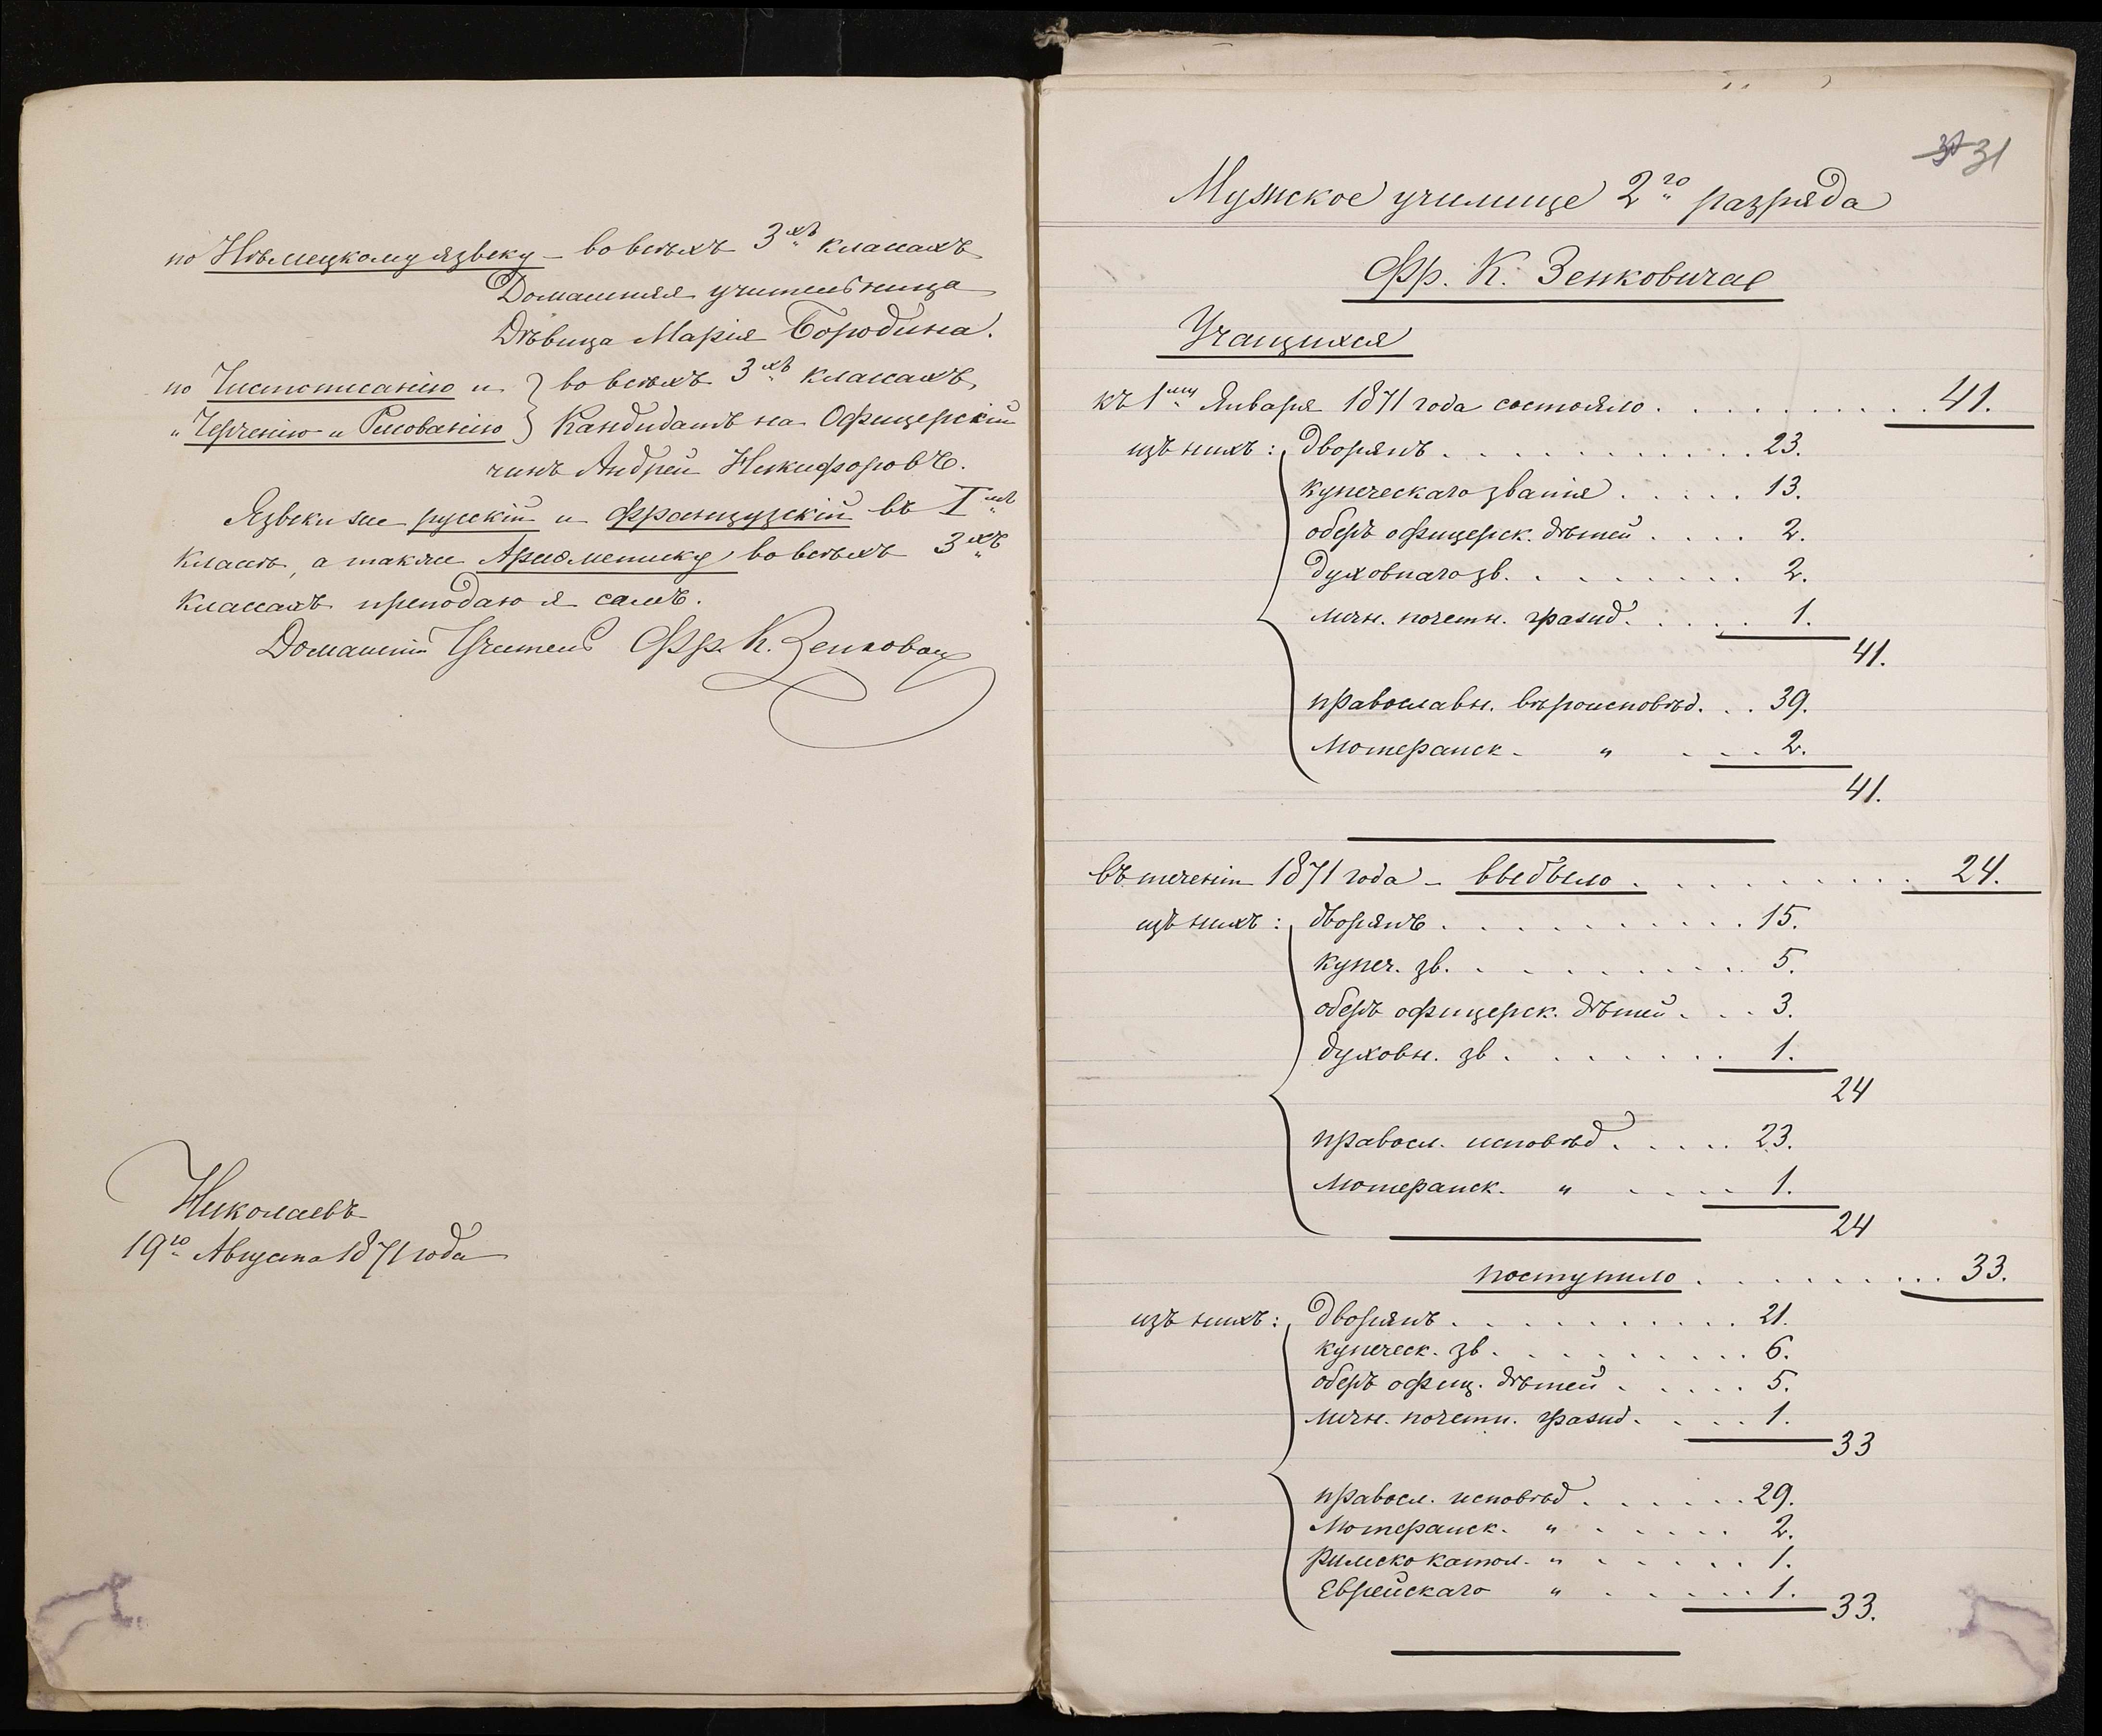 по Нѣмецкому языку – во всѣхъ 3хъ классахъ
Домашняя учительница
Дѣвица Марія Бородина.
по Чистописанію и } во всѣхъ 3хъ классахъ
„ Черченію и Рисованію } Кандидатъ на Офицерскій
чинъ Андрей Никифоровъ.
Языки же русскій и французскій въ Iмъ
классѣ, а также Ариѳметику во всѣхъ 3хъ
классахъ преподаю я самъ.
Домашній Учитель Фр. К. Зенкович
Николаевъ
19го Августа 1871 года
31
Мужское училище 2го разряда
Фр. К. Зенковича
Учащихся
къ 1му Января 1871 года состояло . . . . . . . . . . 41.
изъ нихъ: дворянъ . . . . . . . . . . . 23.
купеческаго званія . . . . . 13.
оберъ офицерск. дѣтей . . . . 2.
духовнаго зв. . . . . . . . 2.
личн. почетн. гражд. . . . . . 1.
41.
православн. вѣроисповѣд. . . 39.
Лютеранск. „ . . . 2.
41.
въ теченіи 1871 года – выбыло . . . . . . . . . . 24.
изъ нихъ: дворянъ . . . . . . . . . . . 15.
купеч. зв. . . . . . . . . . 5.
оберъ офицерск. дѣтей . . . 3.
духовн. зв . . . . . . . . 1.
24
правосл. исповѣд . . . . . 23.
Лютеранск. „ . . . . 1.
24
поступило . . . . . . . . . . 33.
изъ нихъ: дворянъ . . . . . . . . . . 21.
купеческ. зв . . . . . . . . . 6.
оберъ офиц. дѣтей . . . . . 5.
личн. почетн. гражд. . . . . 1.
33
правосл. исповѣд . . . . . . 29.
Лютеранск. „ . . . . . 2.
Римско катол. „ . . . . . 1.
Еврейскаго „ . . . . . 1.
33.